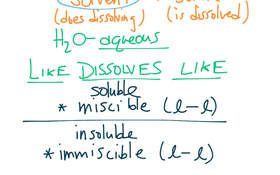 solvent
(does dissolving) (is dissolved)
H₂O - aqueous
LIKE DISSOLVES LIKE
soluble
* miscible (l-l)
insoluble
* immiscible (l-l)